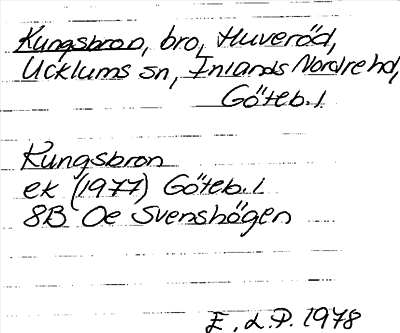 Kungsbron, bro, Huveröd,
Ucklums sn, Inlands Nordre hd,
Göteb. l.
Kungsbron
ek (1977) Göteb. l
8B Oe Svenshögen
E. L. P. 1978